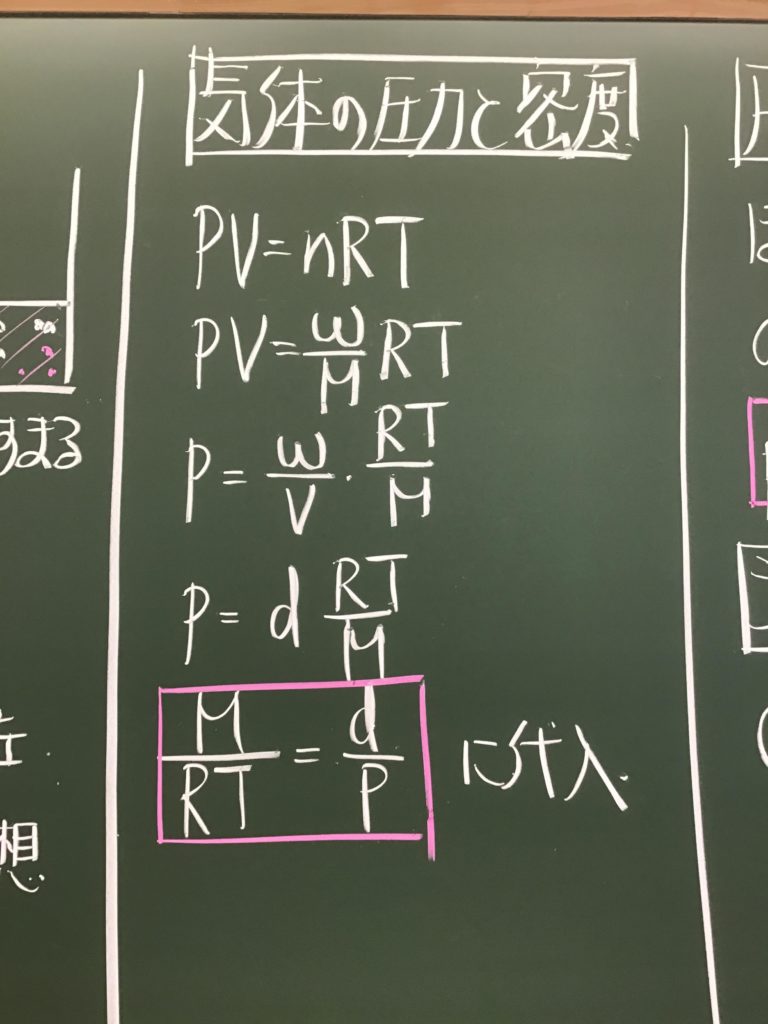 気体の圧力と密度
PV=nRT
PV=w/M RT
P=w/V・RT/M
P=d RT/M
M/RT=d/P に代入.
すまる
想